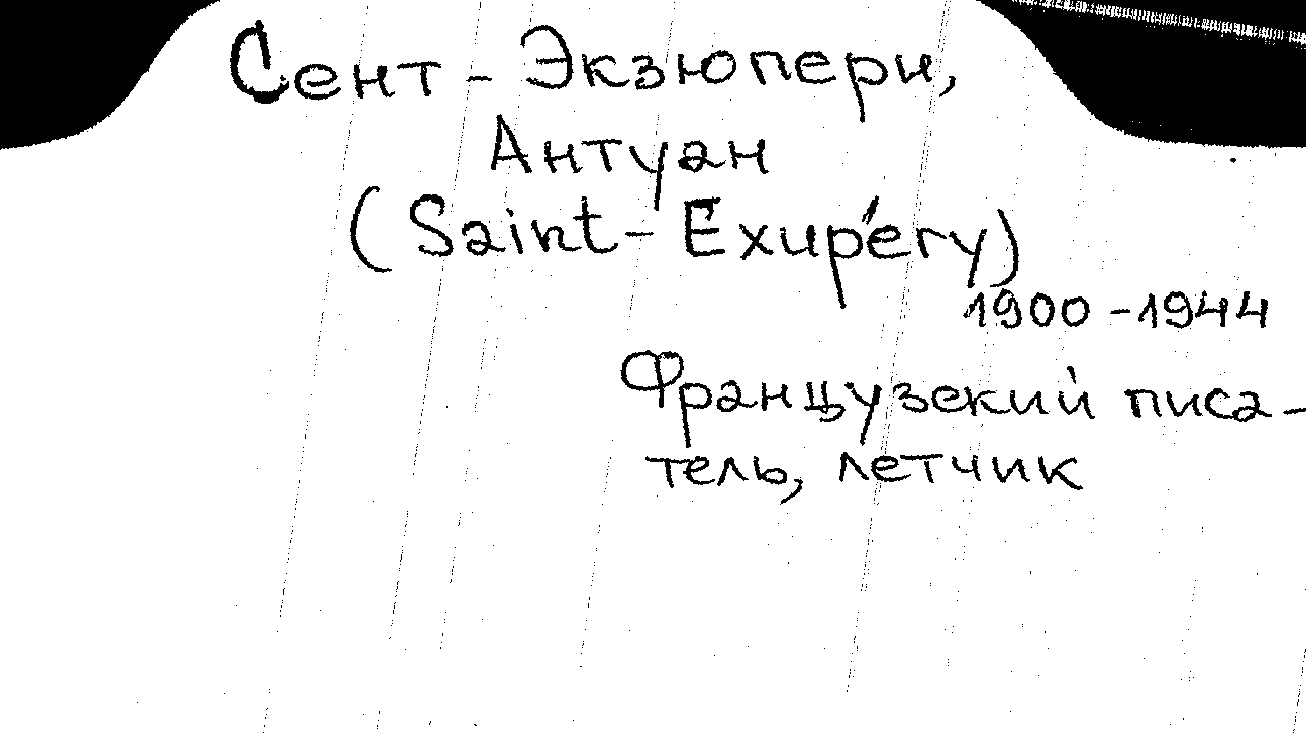 Сент - Экзюпери,
Антуан
(Saint-Exupéry)
1900-1944
Французский писа-
тель, летчик